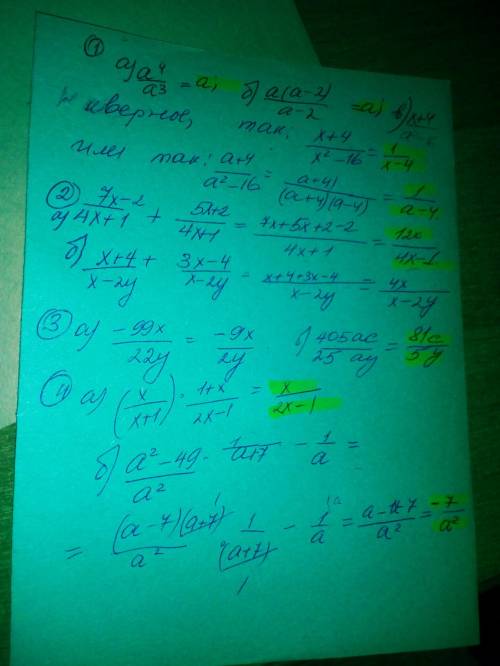 ① а) a⁴/a³ = a; б) a(a-2)/(a-2) = a; в) x+4/
наверное, так: (x+4)/(x²-16) = 1/(x-4)
или так: (a+4)/(a²-16) = (a+4)/((a+4)(a-4)) = 1/(a-4)
② а) (7x-2)/(4x+1) + (5x+2)/(4x+1) = (7x+5x+2-2)/(4x+1) = 12x/(4x-1)
б) (x+4)/(x-2y) + (3x-4)/(x-2y) = (x+4+3x-4)/(x-2y) = 4x/(x-2y)
③ а) -99x/22y = -9x/2y б) 405ac/25ay = 81c/5y
④ а) (x/(x+1)) · (1+x)/(2x-1) = x/(2x-1)
б) (a²-49)/a² · 1/(a+7) - 1/a =
= (a-7)(a+7)/a² 1/(a+7) - 1/a = /a² = -7/a²